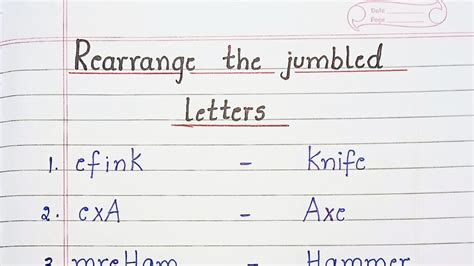 Date
Page
Rearrange the jumbled
letters
1. efink - Knife
2. exA - Axe
3. mreHam - Hammer